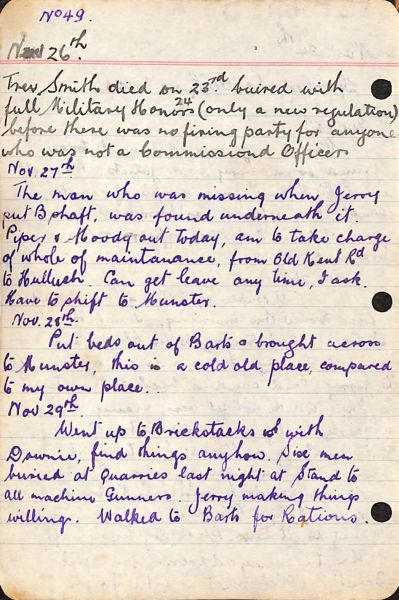 No 49.
Nov 26th.
Trev Smith died on 23rd. buired with
full Military Honors 24 (only a new regulation)
before there was no firing party for anyone
who was not a Commissiond Officer
Nov. 27th
The man who was missing when Jerry
put B shaft, was found underneath it.
Piper & Moody out today, am to take charge
of whole of maintanance, from Old Kent Rd
to Hulluch. Can get leave any time, I ask.
Have to shift to Munster.
Nov. 28th.
Put beds out of Barts & brought across
to Munster, this is a cold old place, compared
to my own place..
Nov 29th.
Went up to Brickstacks with
Downie, find things anyhow. Six men
buried at Quarries last night at Stand to
all machine Gunners. Jerry making things
willing. Walked to Barts for Rations.